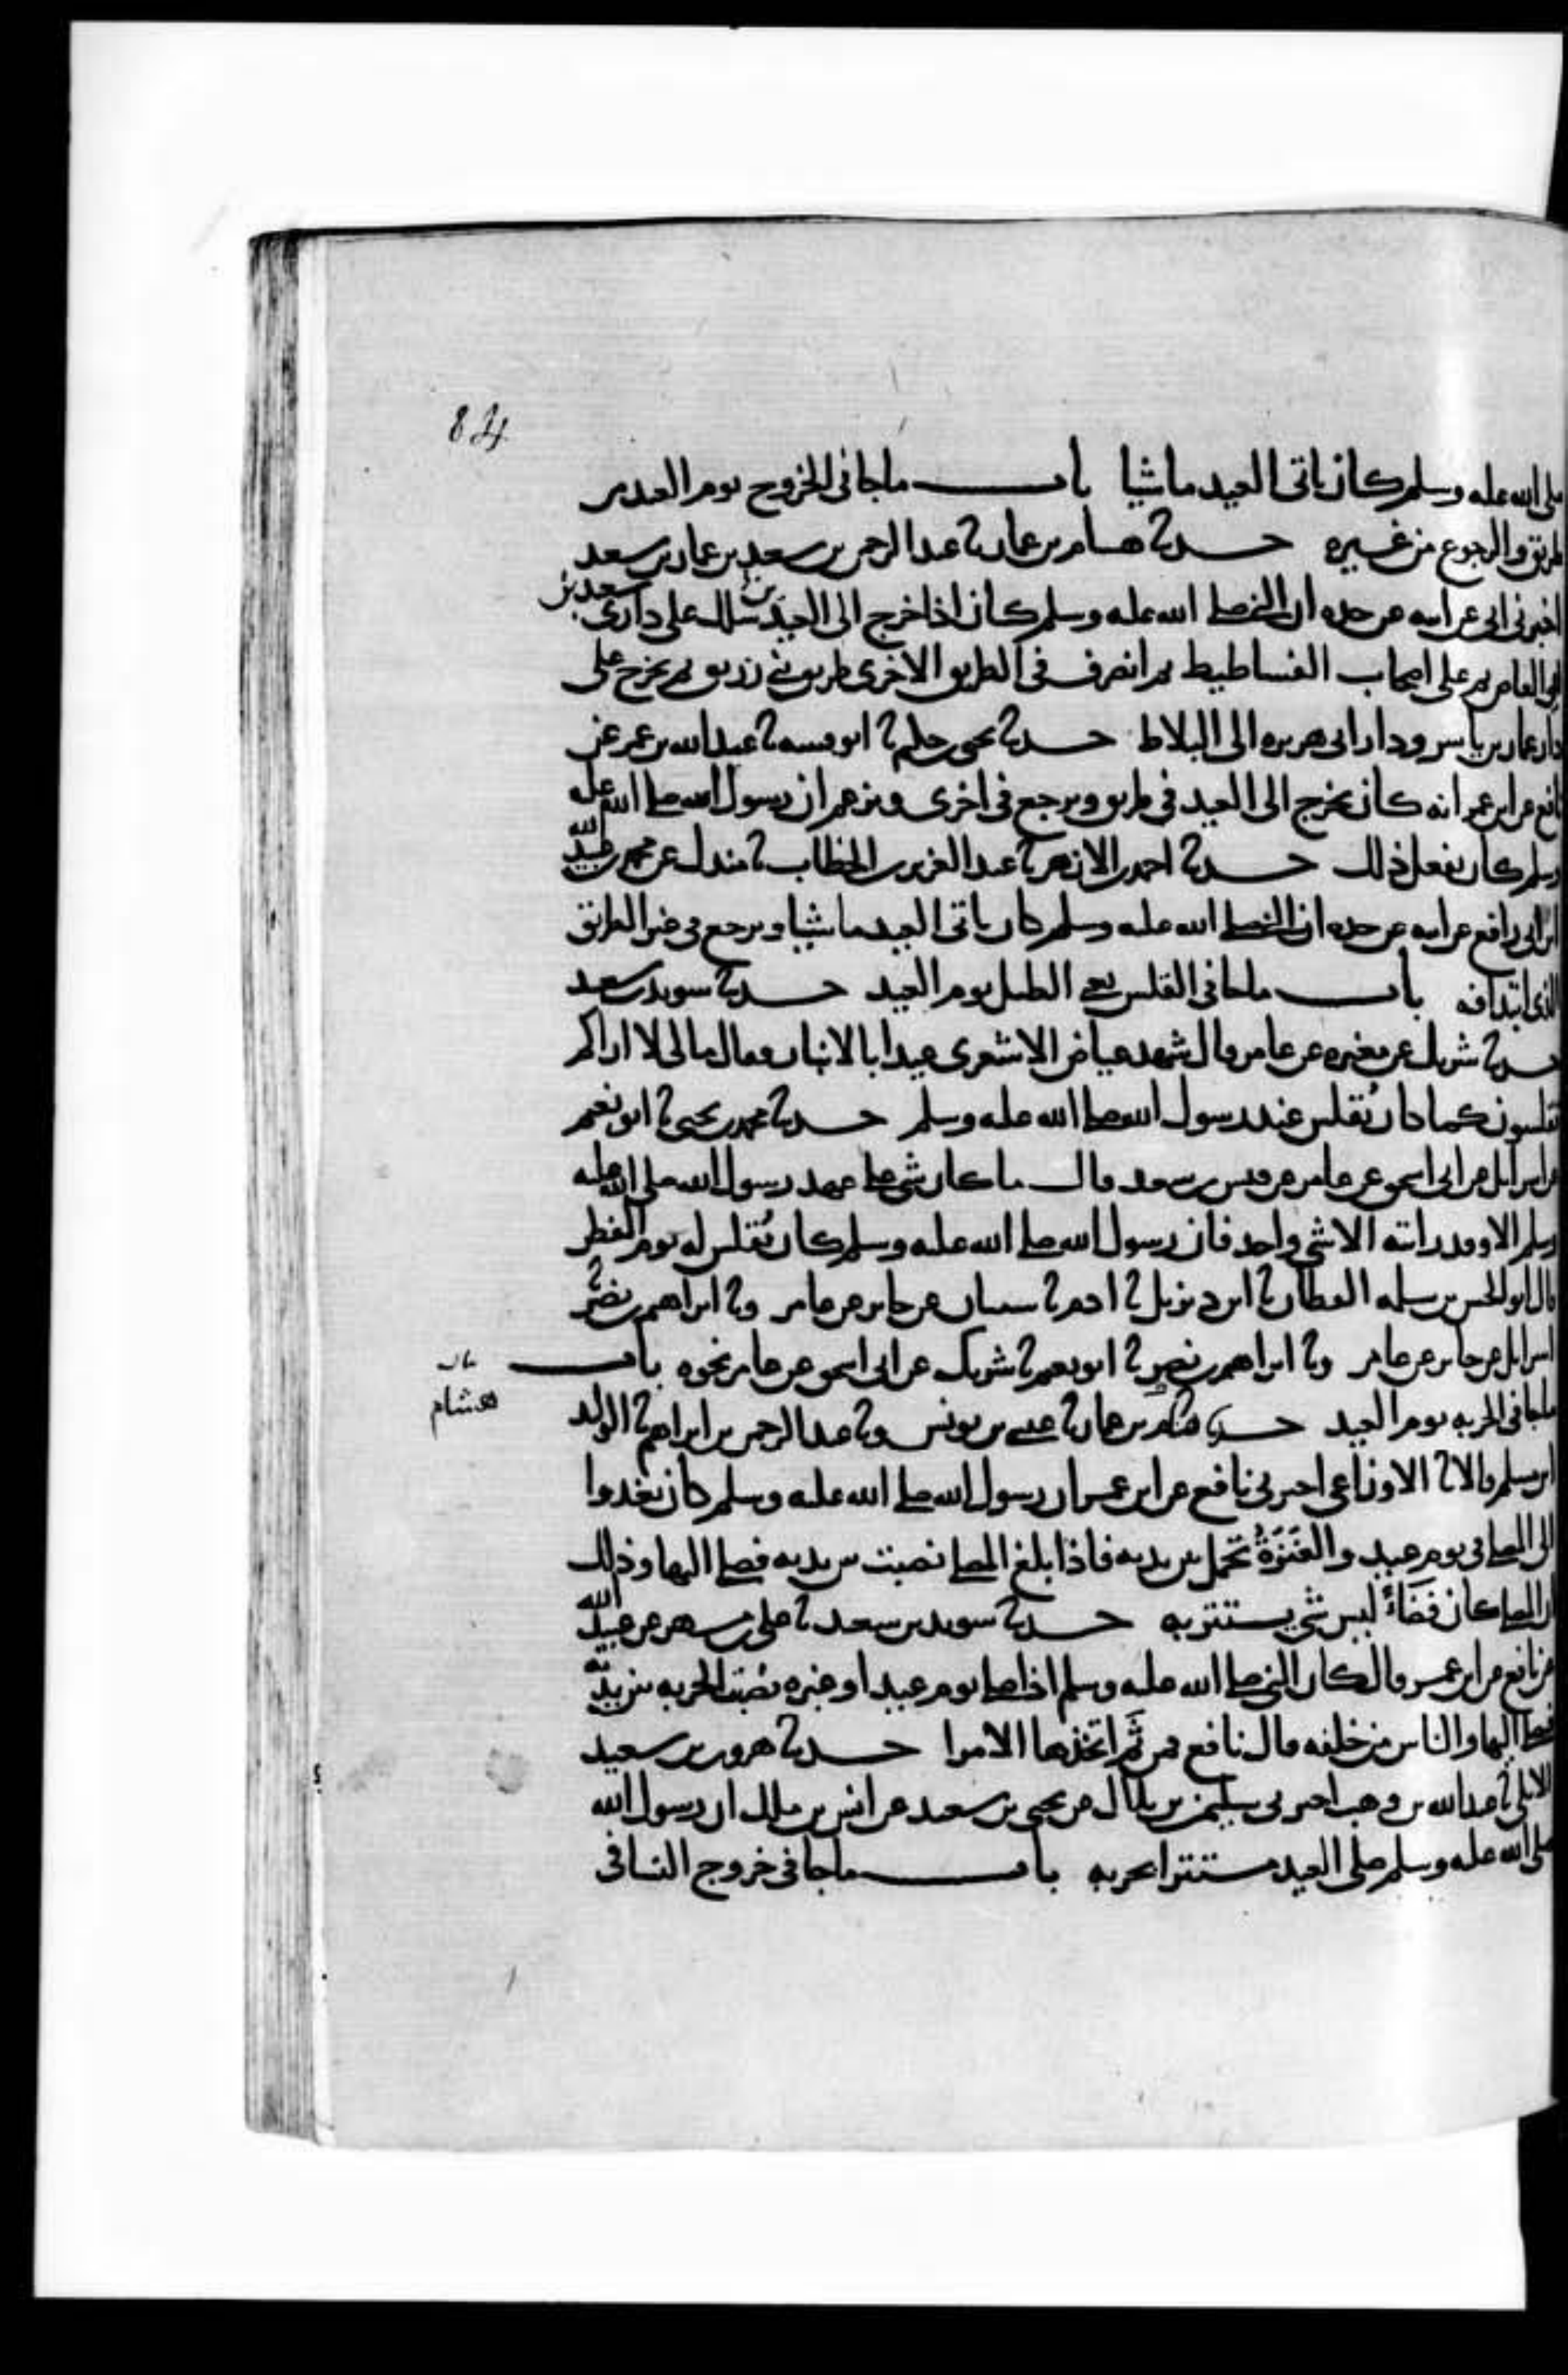 84
صلى الله عليه وسلم كان ياتى العيد ماشيا باب ماجا فى الخروج يوم العيد من
طريق والرجوع من غيره حدثنا هشام بن عمار ثنا عبد الرحمن بن سعد بن عمار بن سعد
اخبرنى ابى عن ابيه عن جده ان النبى صلى الله عليه وسلم كان اذا خرج الى العيدين سلك على دارى سعد بن
ابى العاص ثم على اصحاب الفساطيط ثم انصرف فى الطريق الاخرى طريق بنى زريق ثم يخرج على
دار عمار بن ياسر ودار ابى هريره الى البلاط حدثنا يحيى حكيم ثنا ابو قتيبه ثنا عبد الله بن عمر عن
نافع عن ابن عمر انه كان يخرج الى العيد فى طريق ويرجع فى اخرى ويزعم ان رسول الله صلى الله عليه
وسلم كان يفعل ذلك حدثنا احمد بن الازهر ثنا عبد العزيز بن الخطاب ثنا مندل عن محمد بن عبيد الله
ابن ابى رافع عن ابيه عن جده ان النبى صلى الله عليه وسلم كان ياتى العيد ماشيا ويرجع فى غير الطريق
الذى ابتدا فيه باب ماجا فى التقليس يعنى الطبل يوم العيد حدثنا سويد بن سعيد
حدثنا شريك عن مغيره عن عامر قال شهد عياض الاشعرى عيدا بالانبار فقال مالى لا اراكم
تقلسون كما كان يُقلس عند رسول الله صلى الله عليه وسلم حدثنا محمد بن يحيى ثنا ابو نعيم
عن اسرائل عن ابى اسحق عن عامر عن قيس بن سعد قال ما كان شى على عهد رسول الله صلى الله عليه
وسلم الا وقد رايته الا شى واحد فان رسول الله صلى الله عليه وسلم كان يُقلس له يوم الفطر
قال ابو الحسن بن سلمه القطان ثنا ابن ديزيل ثنا ادم ثنا سيبان عن جابر عن عامر وثنا ابراهيم بن نصر ثنا
اسرايل عن جابر عن عامر وثنا ابراهيم بن نصر ثنا ابو نعيم ثنا شريك عن ابى اسحق عن عامر نحوه باب
ماجا فى الحربه يوم العيد حدثنا هشام بن عمار ثنا عيسى بن يونس وثنا عبد الرحمن بن ابراهيم ثنا الوليد
هشام
ابن مسلم قالا ثنا الاوزاعى اخبرنى نافع عن ابن عمر ان رسول الله صلى الله عليه وسلم كان يغدوا
الى المصلى فى يوم عيد والعَنَزَةُ تحمل بين يديه فاذا بلغ المصلى نصبت بين يديه فصلى اليها وذلك
ان المصلى كان فضَاءً ليس شى يستتر به حدثنا سويد بن سعيد ثنا على بن مسهر عن عبيد الله
عن نافع عن ابن عمر قال كان النبى صلى الله عليه وسلم اذا صلى يوم عيد او غيره نُصبت الحربه بين يديه
فصلى اليها والناس من خلفه قال نافع فمن ثَم اتخذها الامرا حدثنا هرون بن سعيد
الايلى ثنا عبد الله بن وهب اخبرنى سليمن بن بلال عن يحيى بن سعيد عن انس بن ملك ان رسول الله
صلى الله عليه وسلم صلى العيد مستترا بحربه باب ماجا فى خروج النسا فى